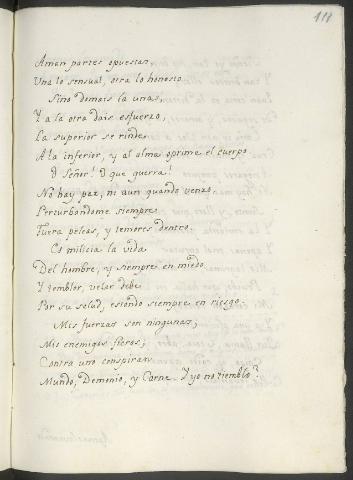 118
Aman partes opuestas,
Una lo sensual, otra lo honesto.
Sino domais la una,
Y a la otra dais esfuerzo,
La superior se rinde
A la inferior, y al alma oprime el cuerpo
ò Señor! ò que guerra!
No hay paz, ni aun quando venzo,
Perturbandome siempre
Fuera peleas, y temores dentro.
Es milicia la vida
Del hombre, y siempre en miedo
Y temblor, velar debe
Por su salud, estando siempre en riesgo.
Mis fuerzas son ningunas;
Mis enemigos fieros;
Contra uno conspiran
Mundo, Demonio, y Carne. Y yo no tiemblo?